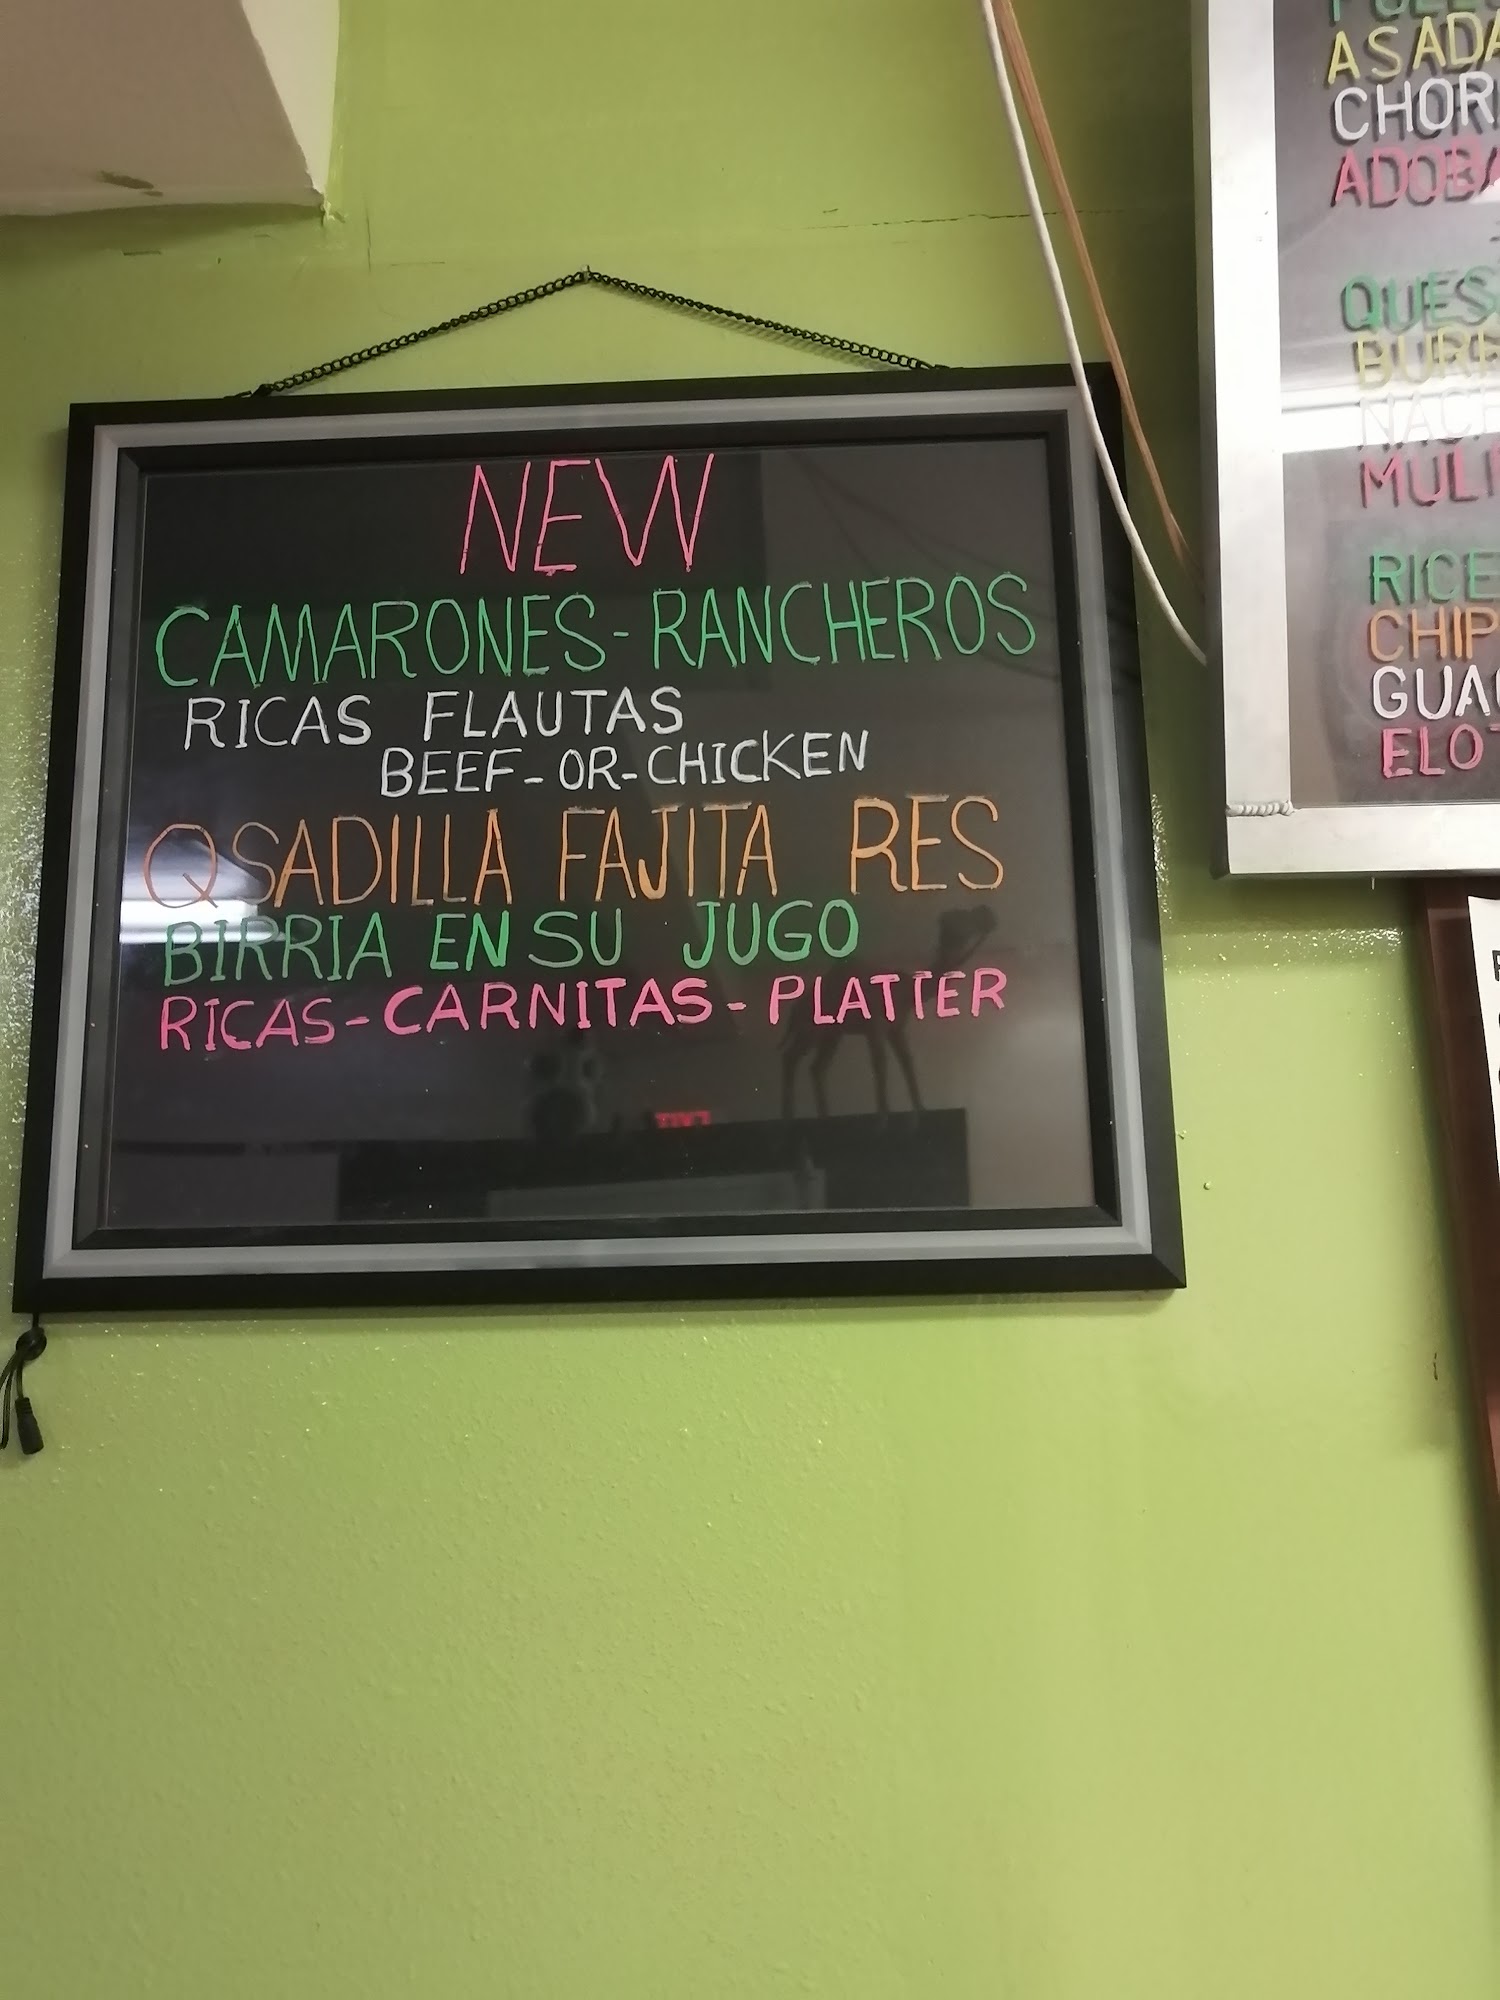 NEW
CAMARONES-RANCHEROS
RICAS FLAUTAS
BEEF-OR-CHICKEN
QSADILLA FAJITA RES
BIRRIA EN SU JUGO
RICAS-CARNITAS-PLATTER
ASADA
CHOR
ADOBA
QUES
BURR
NACH
MULI
RICE
CHIP
GUAC
ELOT